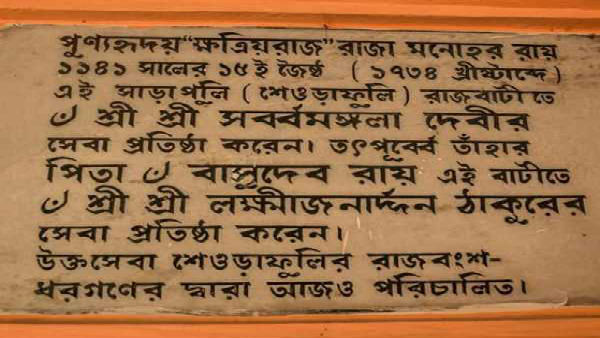 পুণ্যহৃদয় "ক্ষত্রিয়রাজ" রাজা মনোহর রায়
১১৪১ সালের ১৫ই জৈষ্ঠ ( ১৭৩৪ খ্রীষ্টাব্দে )
এই সাড়াপুলি ( শেওড়াফুলি ) রাজবাটীতে
ঁ শ্রী শ্রী সর্বমঙ্গলা দেবীর
সেবা প্রতিষ্ঠা করেন। তৎপূর্ব্বে তাঁহার
পিতা ঁ বাসুদেব রায় এই বাটীতে
ঁ শ্রী শ্রী লক্ষ্মীজনার্দ্দন ঠাকুরের
সেবা প্রতিষ্ঠা করেন।
উক্তসেবা শেওড়াফুলির রাজবংশ-
ধরগণের দ্বারা আজও পরিচালিত।